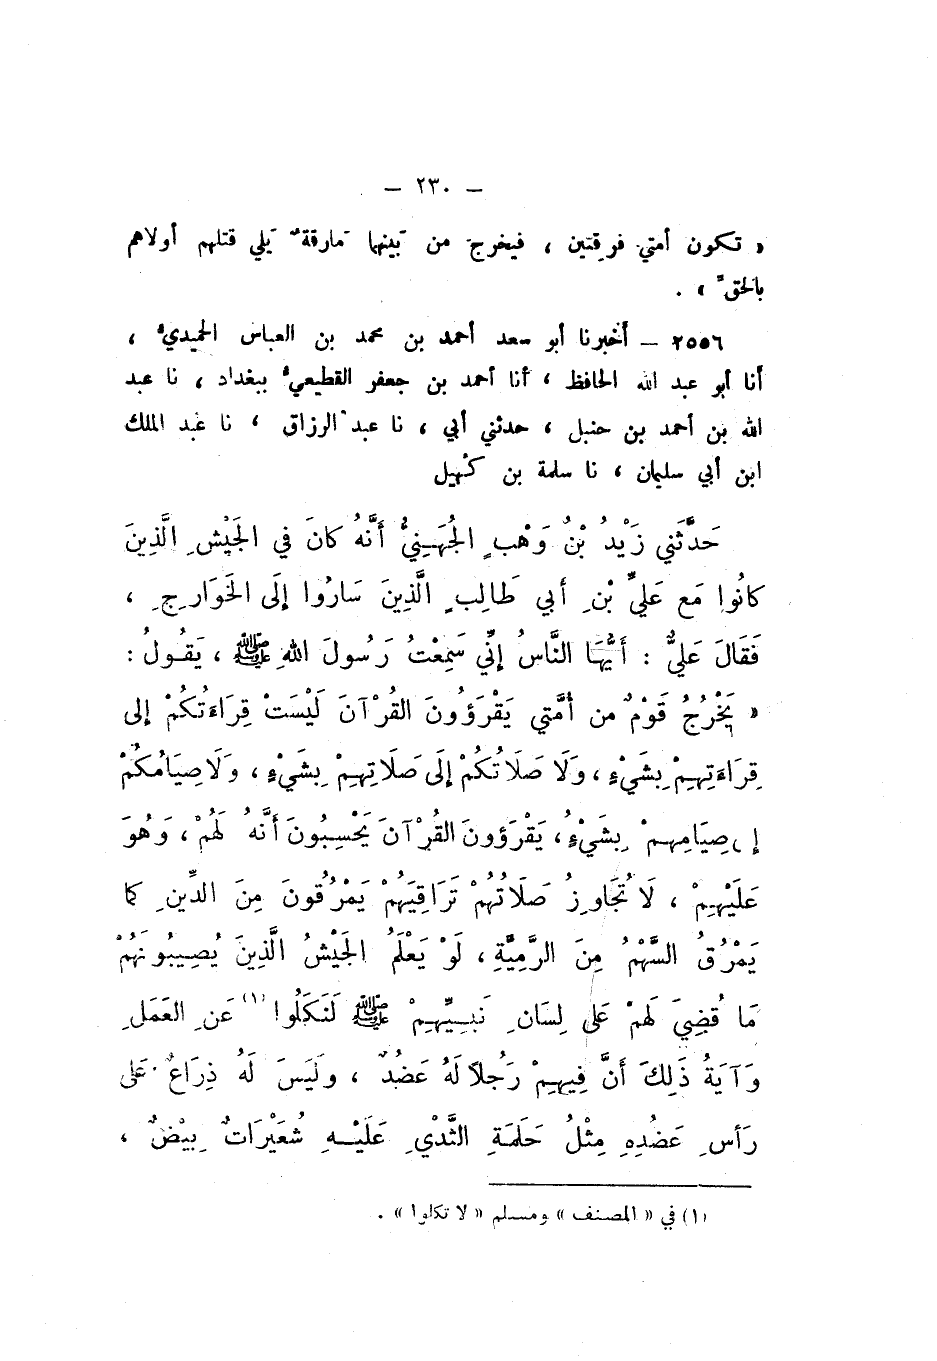 — ٢٣٠ —
« تكون أمتي فرقتين ، فيخرج من بَينهما مَارقةٌ يَلي قتلهم أولاهم
بالحقّ » .
٢٥٥٦ — أخبرنا أبو سعد أحمد بن محمد بن العباس الحميديُّ ،
أنا أبو عبد الله الحافظ ، أنا أحمد بن جعفر القطيعيُّ ببغداد ، نا عبد
الله بن أحمد بن حنبل ، حدثني أبي ، نا عبد الرزاق ، نا عبد الملك
ابن أبي سليمان ، نا سلمة بن كُهيل
حَدَّثَني زَيْدُ بْنُ وَهْبٍ الجُهَنِيُّ أَنَّهُ كانَ في الجَيْشِ الَّذِينَ
كانُوا مَع عَلِيِّ بْنِ أبي طَالِبٍ الَّذِينَ سَارُوا إلَى الخَوَارِجِ ،
فَقَالَ عَلِيٌّ : أَيُّهَا النَّاسُ إنِّي سَمِعْتُ رَسُولَ اللهِ ﷺ ، يَقُولُ :
« يَخْرُجُ قَوْمٌ من أُمَّتي يَقْرَؤُونَ القُرْآنَ لَيْسَتْ قِرَاءَتُكُمْ إلى
قِرَاءَتِهِمْ بِشَيْءٍ ، وَلَا صَلَاتُكُمْ إلَى صَلَاتِهِمْ بِشَيْءٍ ، وَلَا صِيَامُكُمْ
إلى صِيَامِهِمْ بِشَيْءٍ ، يَقْرَؤونَ القُرْآنَ يَحْسِبُونَ أَنَّهُ لَهُمْ ، وَهُوَ
عَلَيْهِمْ ، لَا تُجَاوِزُ صَلَاتُهُمْ تَرَاقِيَهُمْ يَمْرُقُونَ مِنَ الدِّينِ كما
يَمْرُقُ السَّهْمُ مِنَ الرَّمِيَّةِ ، لَوْ يَعْلَمُ الجَيْشُ الَّذِينَ يُصِيبُونَهُمْ
مَا قُضِيَ لَهُمْ عَلى لِسَانِ نَبِيِّهِمْ ﷺ لَنَكَلُوا (١) عَنِ العَمَلِ
وَآيَةُ ذَلِكَ أَنَّ فِيهِمْ رَجُلاً لَهُ عَضُدٌ ، وَلَيْسَ لَهُ ذِرَاعٌ عَلى
رَأسِ عَضُدِهِ مِثْلُ حَلَمَةِ الثَّدْيِ عَلَيْهِ شُعَيْرَاتٌ بِيْضٌ ،
(١) في « المصنف » ومسلم « لا تكلوا » .